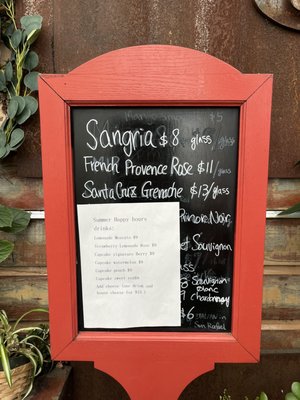 $5
Sangria $8 glass
French Provence Rose $11/glass
Santa Cruz Grenache $13/glass
Pinot Noir
Summer Happy hours
drinks:
Lemonade Moscato $9
Strawberry Lemonade Rose $9
Cupcake signature Berry $9
Cupcake watermelon $9
Cupcake peach $9
Cupcake sweet
Add cheese
house cheese for $15.
Sauvignon
Sauvignon
Blanc
Chardonnay
$6
San Rafael